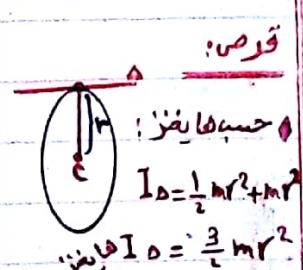 قرص:
Δ
حسب هايغنز:
r
c
I_Δ = 1/2 mr² + mr²
هايغنز I_Δ = 3/2 mr²